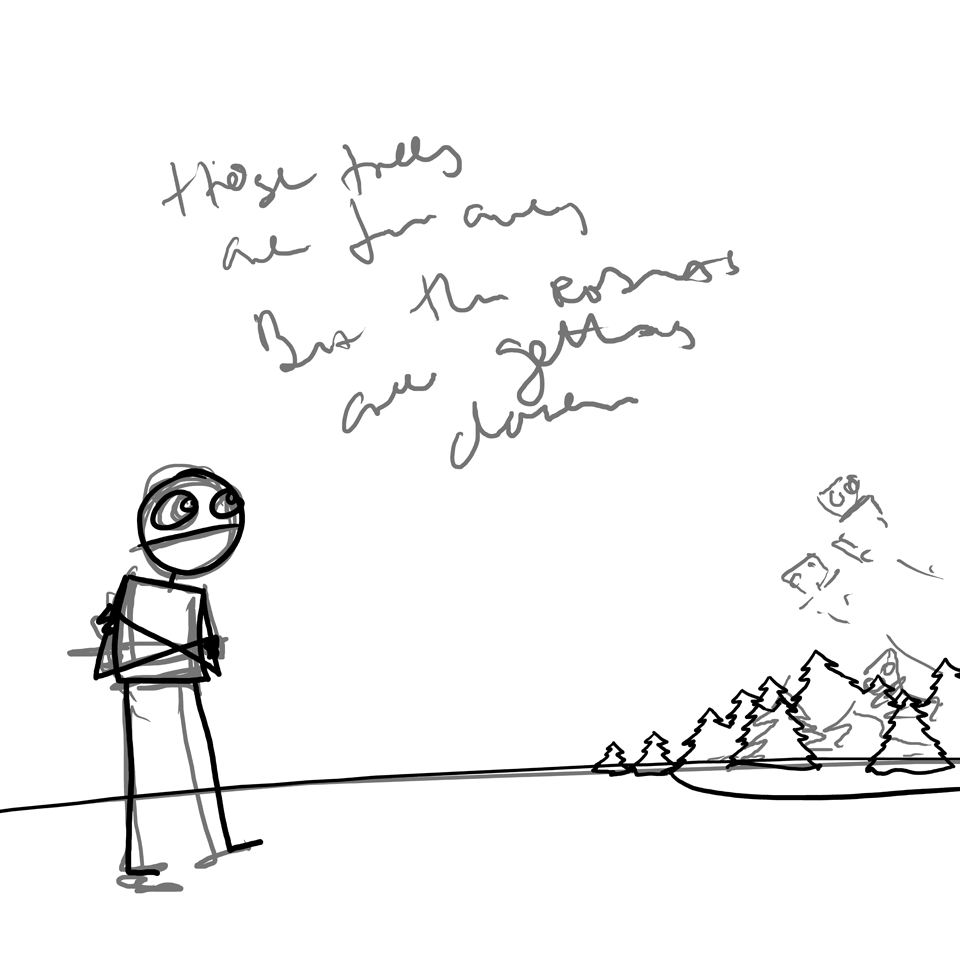 those trees
are far away
But the
are getting
closer